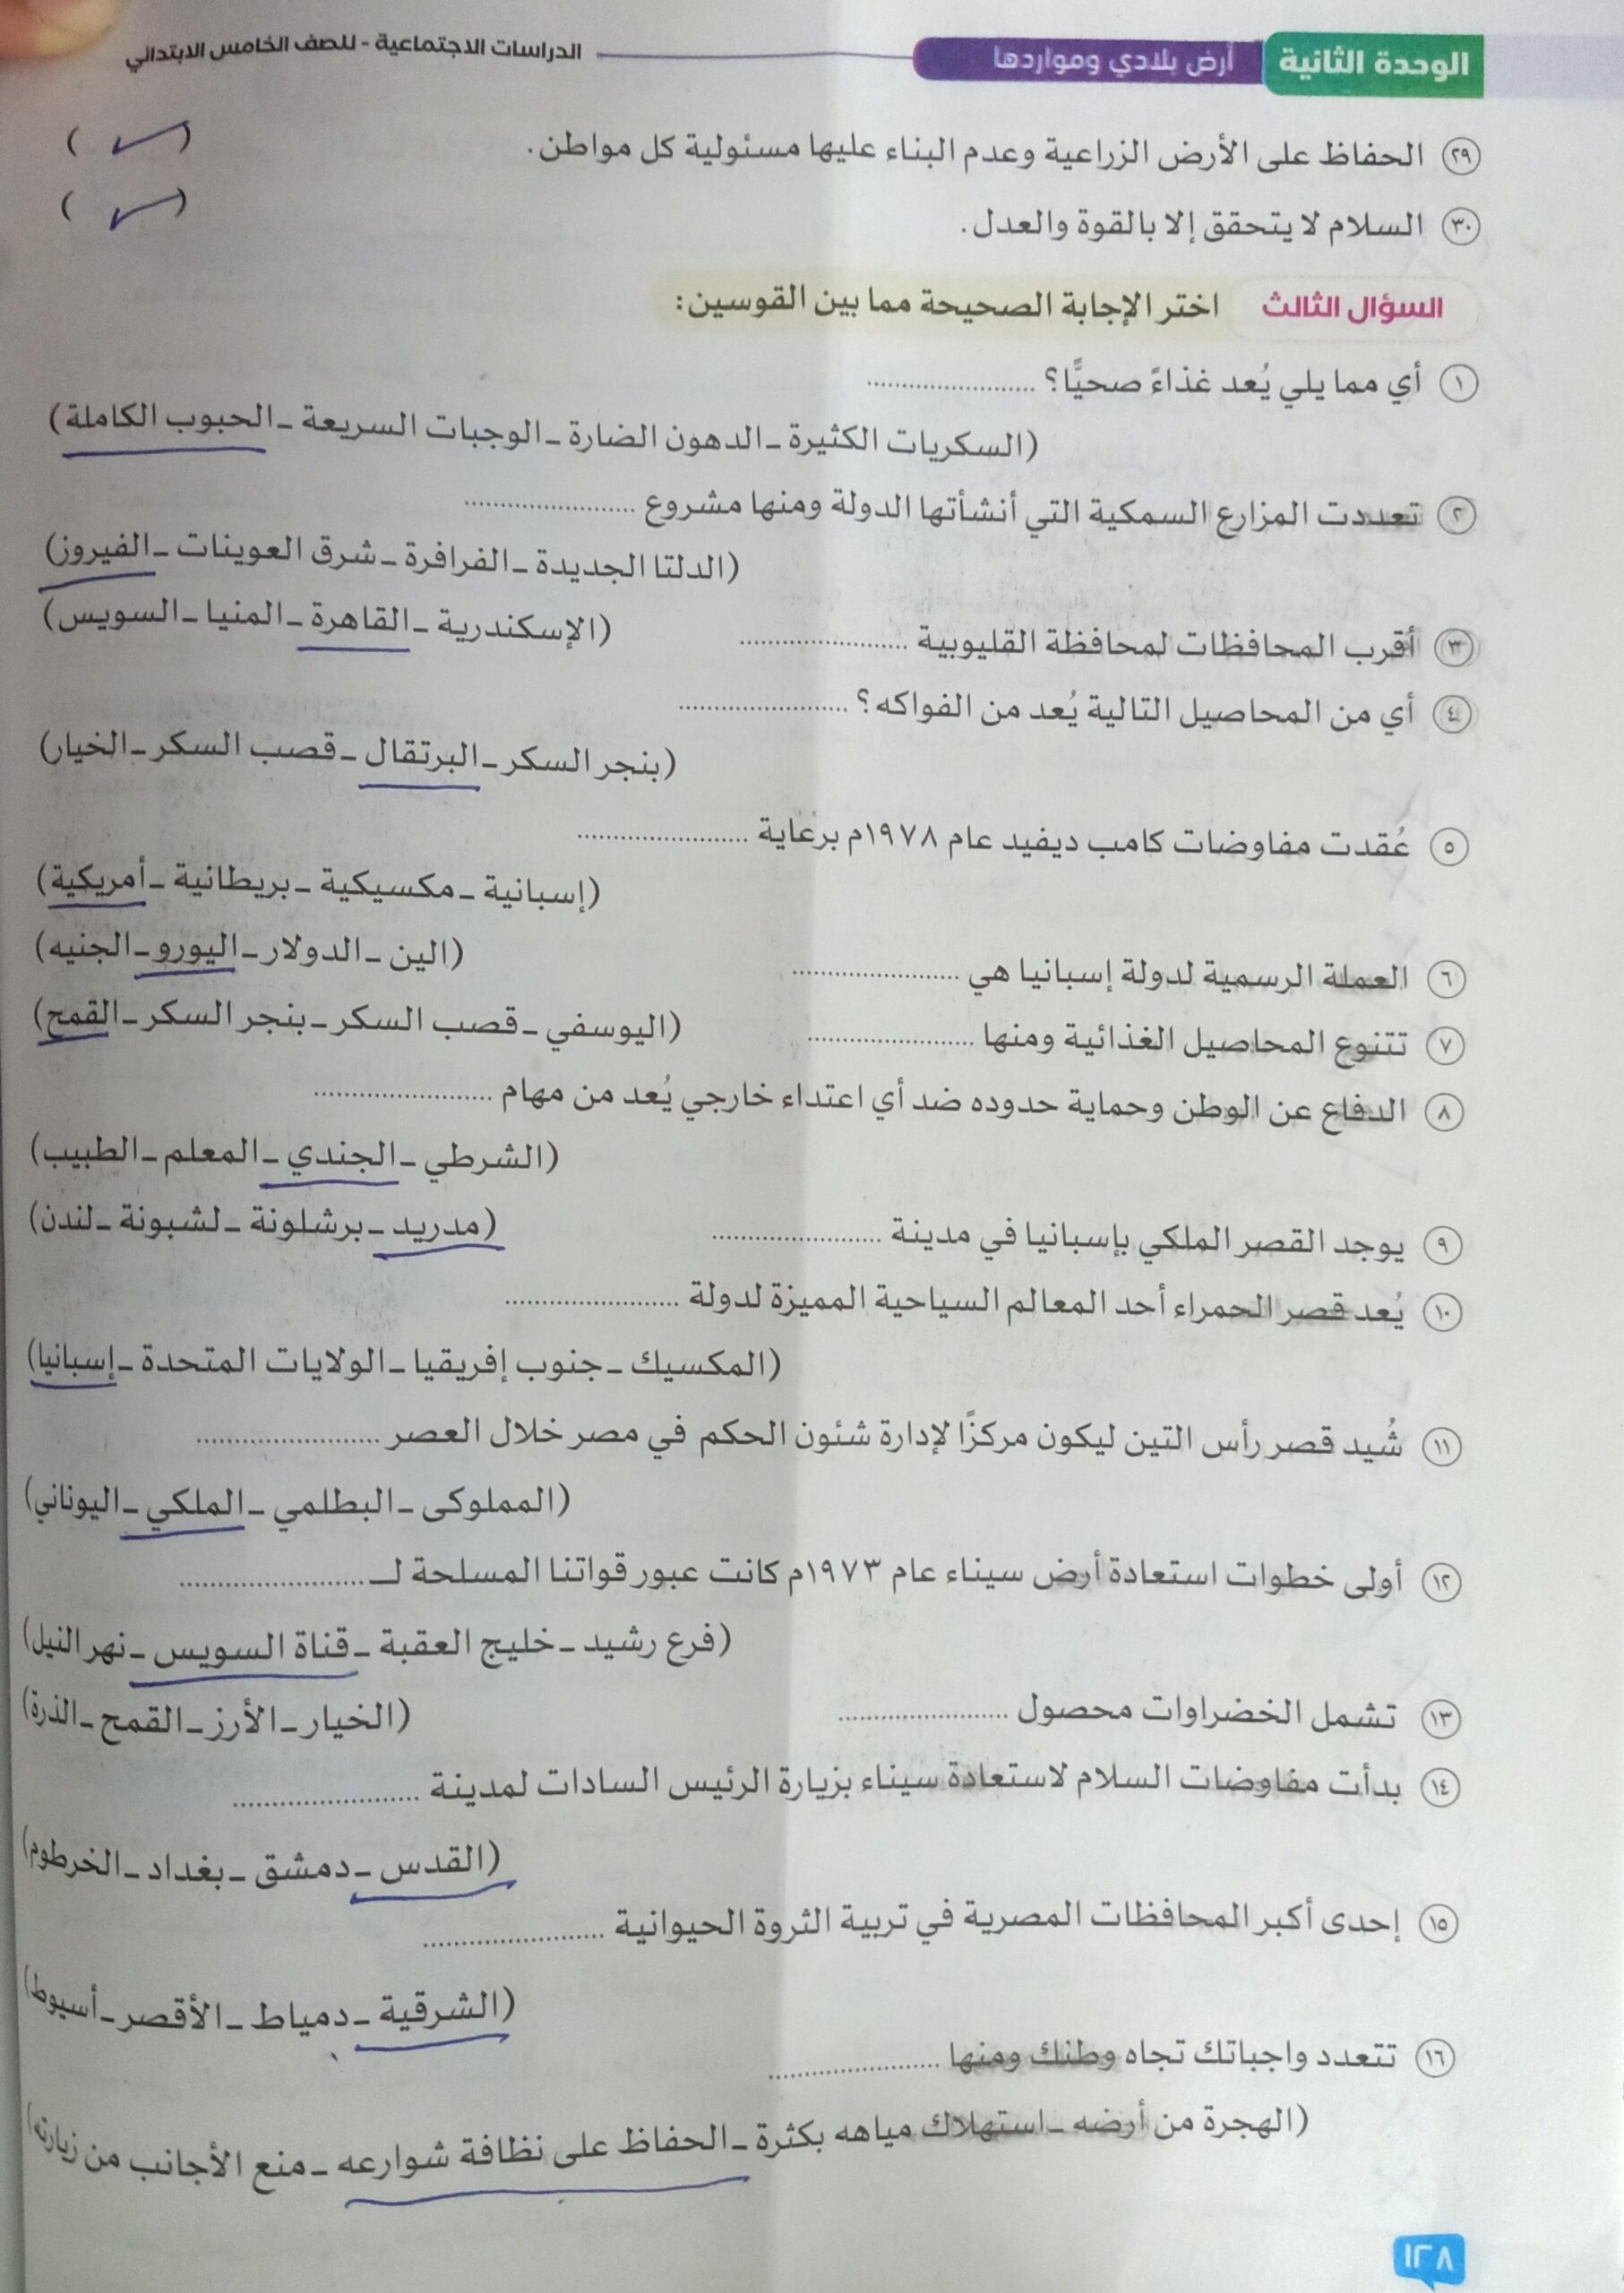 الوحدة الثانية أرض بلادي ومواردها الدراسات الاجتماعية - للصف الخامس الابتدائي
٢٩ الحفاظ على الأرض الزراعية وعدم البناء عليها مسئولية كل مواطن. ( ✓ )
٣٠ السلام لا يتحقق إلا بالقوة والعدل. ( ✓ )
السؤال الثالث اختر الإجابة الصحيحة مما بين القوسين:
١ أي مما يلي يُعد غذاءً صحيًّا؟ ......................
(السكريات الكثيرة - الدهون الضارة - الوجبات السريعة - الحبوب الكاملة)
٢ تعددت المزارع السمكية التي أنشأتها الدولة ومنها مشروع ......................
(الدلتا الجديدة - الفرافرة - شرق العوينات - الفيروز)
٣ أقرب المحافظات لمحافظة القليوبية ...................... (الإسكندرية - القاهرة - المنيا - السويس)
٤ أي من المحاصيل التالية يُعد من الفواكه؟ ......................
(بنجر السكر - البرتقال - قصب السكر - الخيار)
٥ عُقدت مفاوضات كامب ديفيد عام ١٩٧٨م برعاية ......................
(إسبانية - مكسيكية - بريطانية - أمريكية)
٦ العملة الرسمية لدولة إسبانيا هي ...................... (الين - الدولار - اليورو - الجنيه)
٧ تتنوع المحاصيل الغذائية ومنها ...................... (اليوسفي - قصب السكر - بنجر السكر - القمح)
٨ الدفاع عن الوطن وحماية حدوده ضد أي اعتداء خارجي يُعد من مهام ......................
(الشرطي - الجندي - المعلم - الطبيب)
٩ يوجد القصر الملكي بإسبانيا في مدينة ...................... (مدريد - برشلونة - لشبونة - لندن)
١٠ يُعد قصر الحمراء أحد المعالم السياحية المميزة لدولة ......................
(المكسيك - جنوب إفريقيا - الولايات المتحدة - إسبانيا)
١١ شُيد قصر رأس التين ليكون مركزًا لإدارة شئون الحكم في مصر خلال العصر ......................
(المملوكى - البطلمي - الملكي - اليوناني)
١٢ أولى خطوات استعادة أرض سيناء عام ١٩٧٣م كانت عبور قواتنا المسلحة لـ ......................
(فرع رشيد - خليج العقبة - قناة السويس - نهر النيل)
١٣ تشمل الخضراوات محصول ...................... (الخيار - الأرز - القمح - الذرة)
١٤ بدأت مفاوضات السلام لاستعادة سيناء بزيارة الرئيس السادات لمدينة ......................
(القدس - دمشق - بغداد - الخرطوم)
١٥ إحدى أكبر المحافظات المصرية في تربية الثروة الحيوانية ......................
(الشرقية - دمياط - الأقصر - أسيوط)
١٦ تتعدد واجباتك تجاه وطنك ومنها ......................
(الهجرة من أرضه - استهلاك مياهه بكثرة - الحفاظ على نظافة شوارعه - منع الأجانب من زيارته)
١٢٨